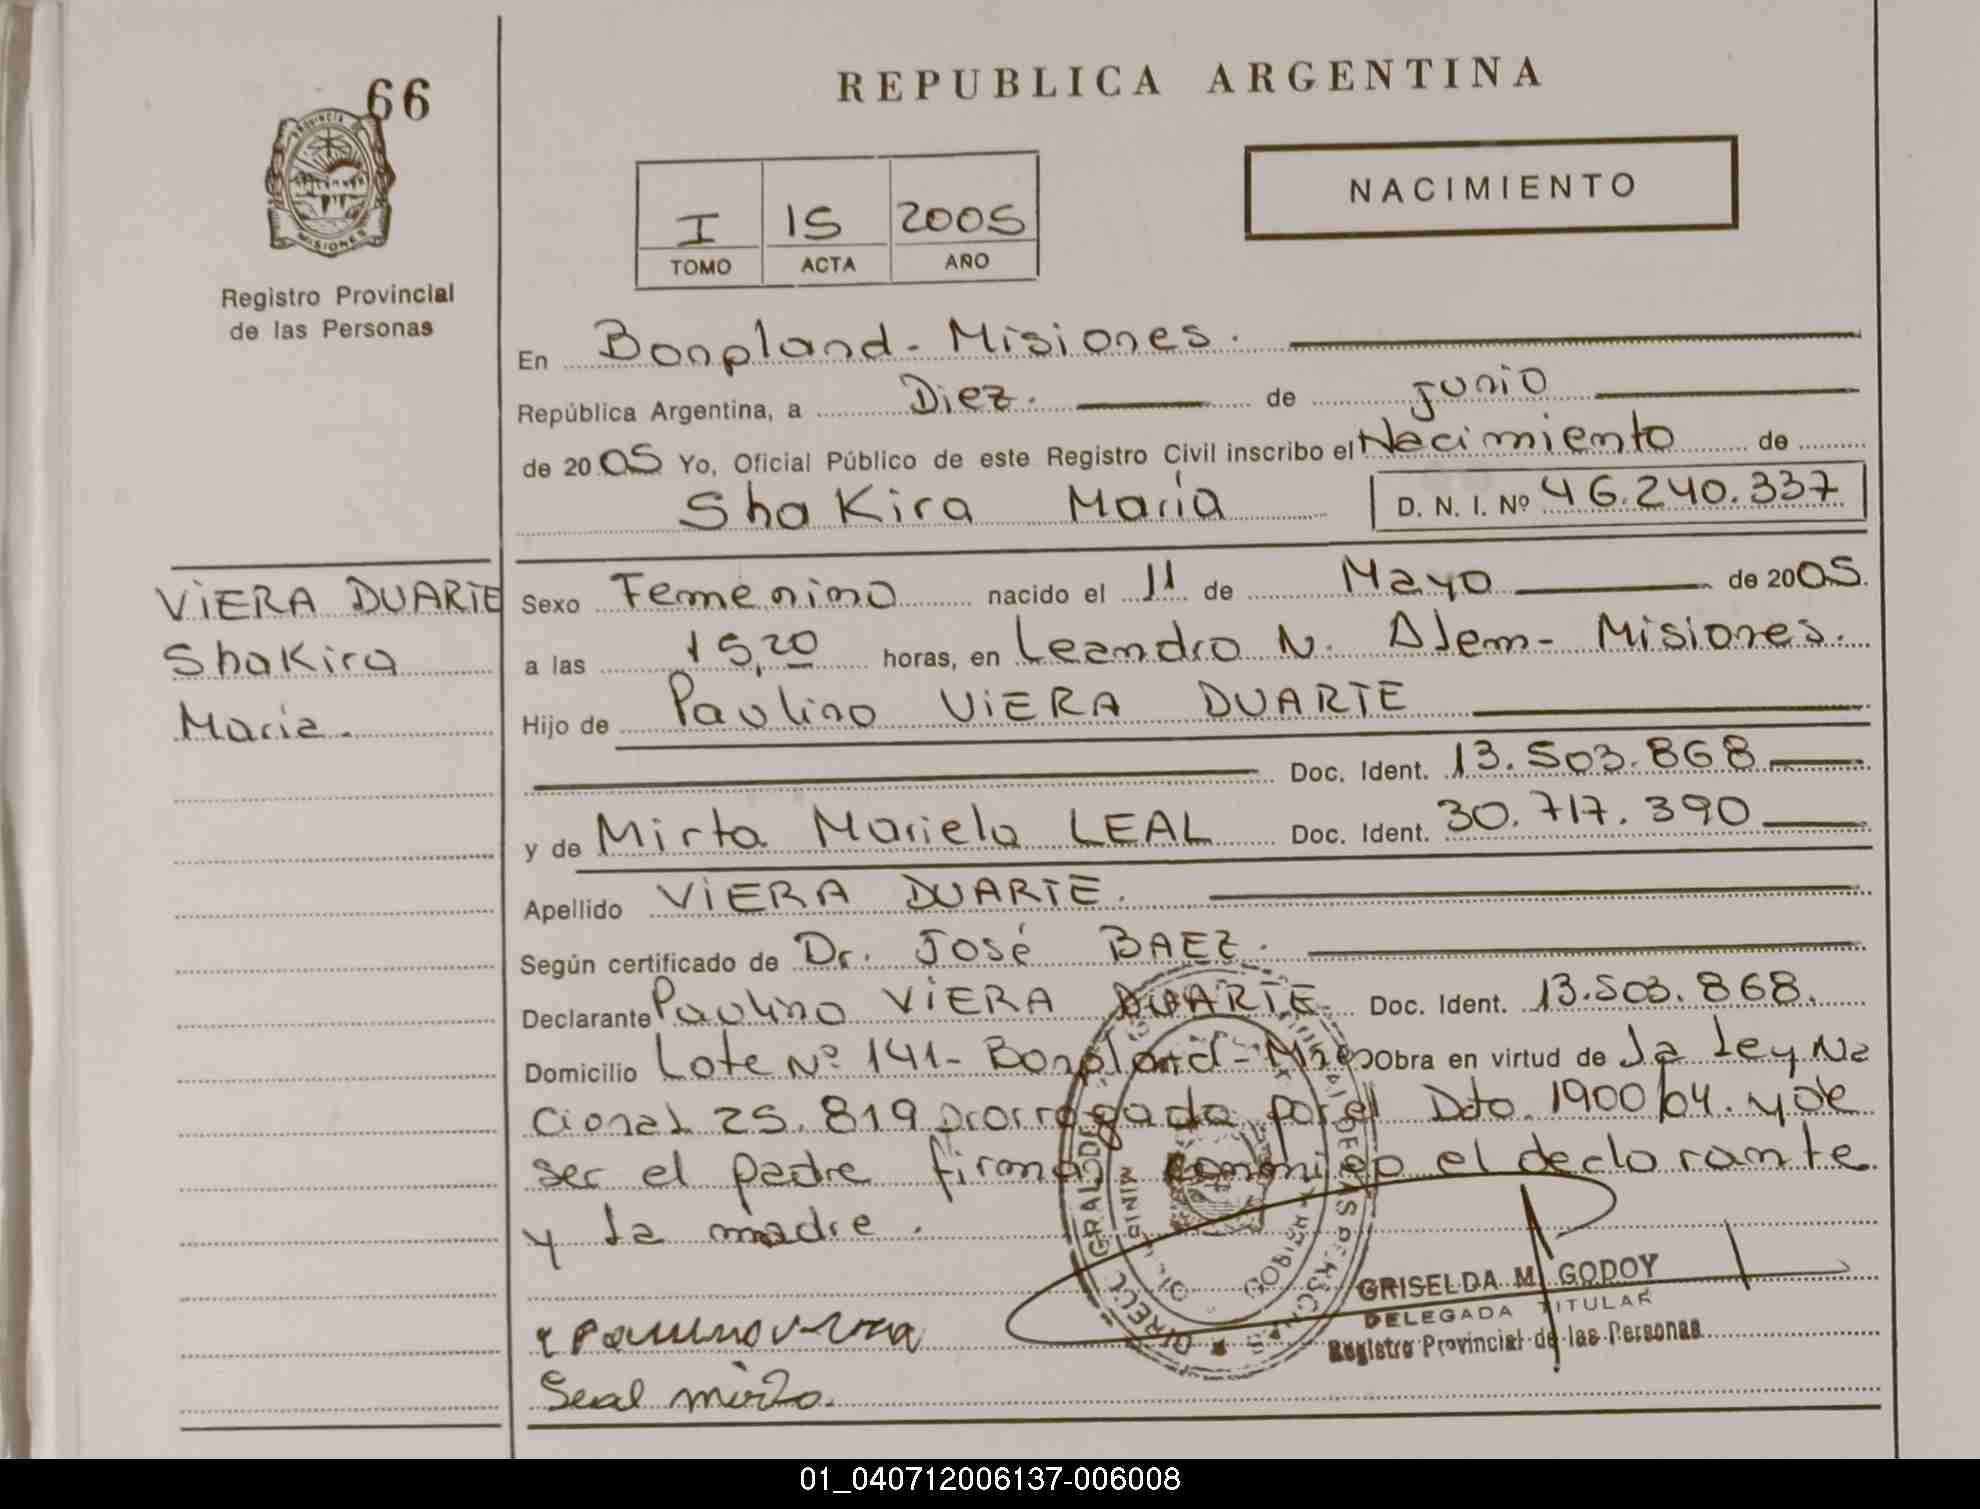 66
REPUBLICA ARGENTINA
PROVINCIA DE
MISIONES
NACIMIENTO
I 15 2005
TOMO ACTA AÑO
Registro Provincial
de las Personas
En Bonpland - Misiones.
República Argentina, a Diez. de junio
de 2005 Yo, Oficial Público de este Registro Civil inscribo el Nacimiento de
ShaKira María D. N. I. Nº 46.240.337
VIERA DUARTE
ShaKira
María.
Sexo Femenino nacido el 11 de Mayo de 2005.
a las 15,20 horas, en Leandro N. Alem - Misiones.
Hijo de Paulino VIERA DUARTE
Doc. Ident. 13.503.868
y de Mirta Mariela LEAL Doc. Ident. 30.717.390
Apellido VIERA DUARTE.
Según certificado de Dr. José BAEZ.
Declarante Paulino VIERA DUARTE. Doc. Ident. 13.503.868.
Domicilio Lote Nº 141 - Bonpland - Mnes Obra en virtud de la Ley Na
cional 25.819 prorrogada por el Dto. 1900/04. y de
ser el padre firman conmigo el declarante
y la madre.
GRISELDA M. GODOY
DELEGADA TITULAR
Registro Provincial de las Personas
Paulino Viera
Leal mirta.
01_040712006137-006008